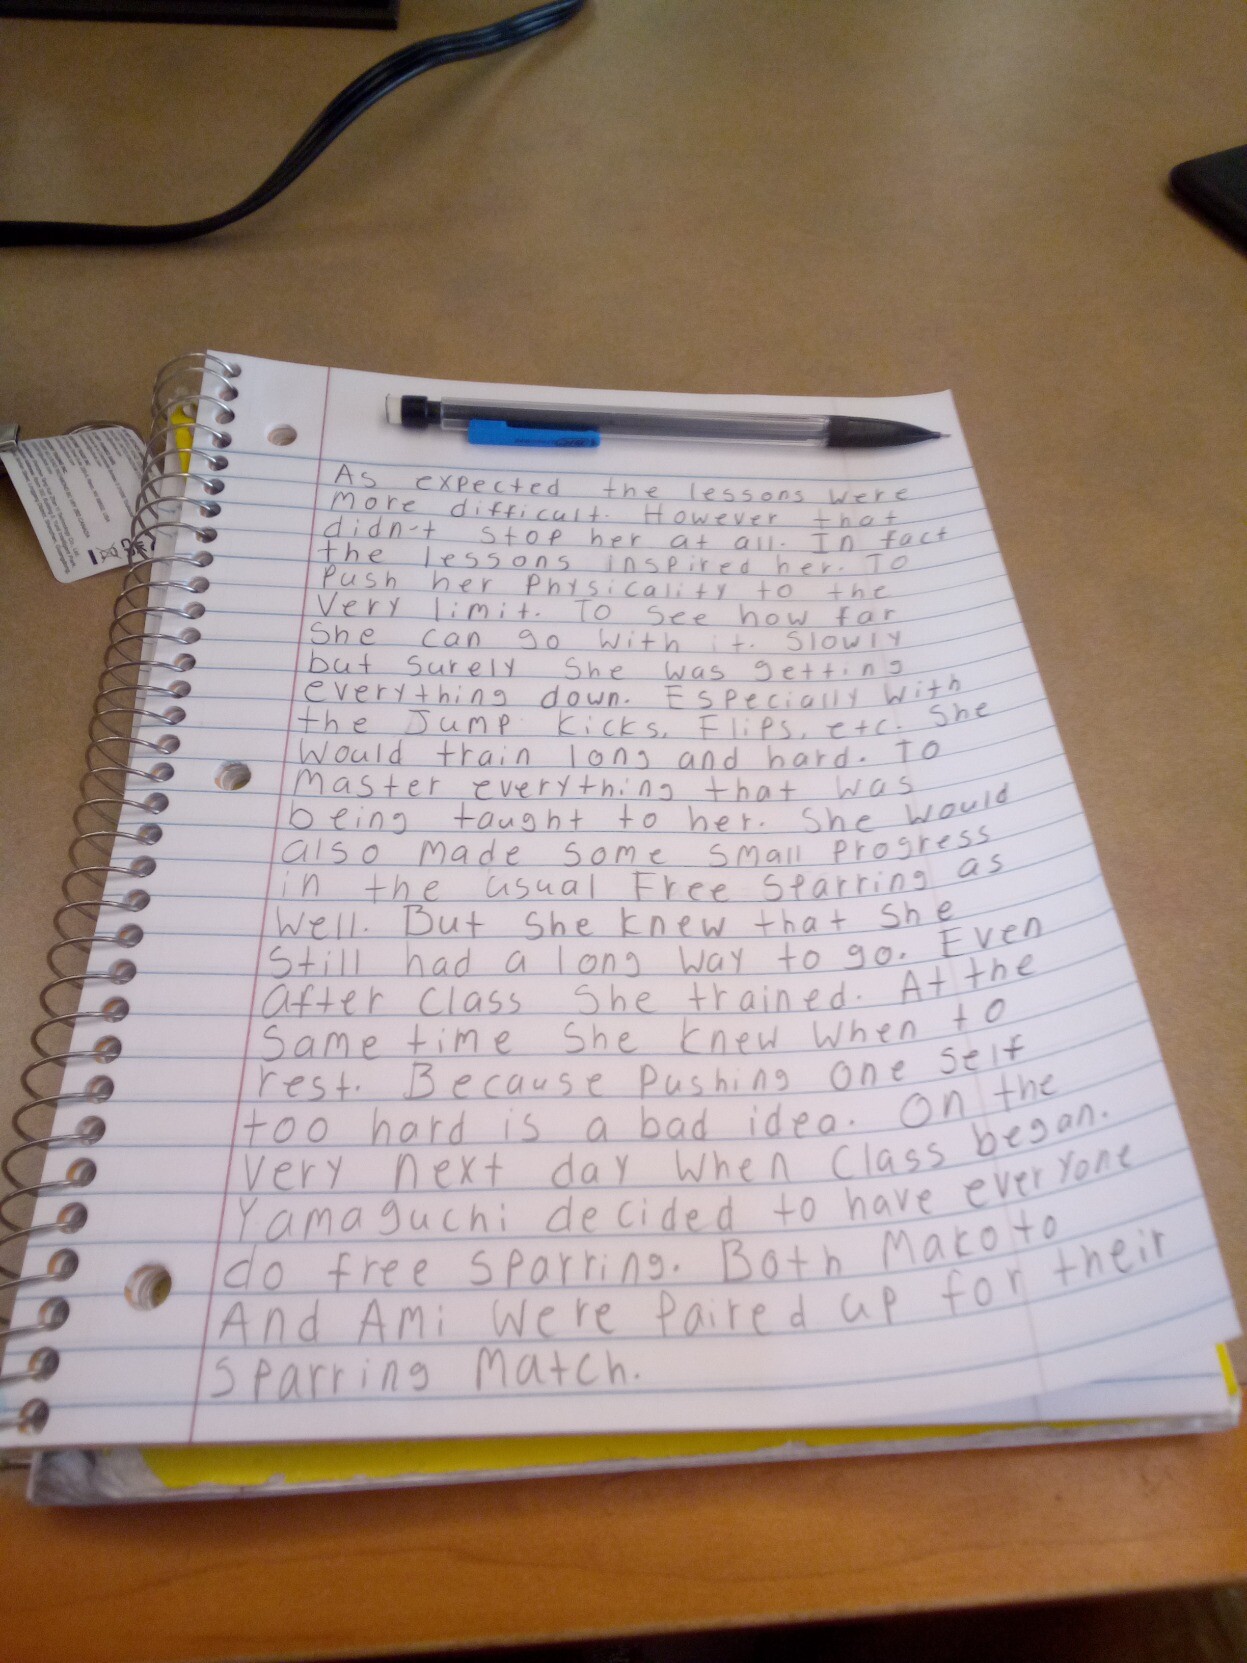 As expected the lessons were
more difficult. However that
didn't stop her at all. In fact
the lessons inspired her. To
Push her Physicality to the
Very limit. To see how far
She can go with it. Slowly
but surely she was getting
everything down. Especially with
the Jump kicks, Flips, etc. She
Would train long and hard. To
Master everything that was
being taught to her. She would
also made some small Progress
in the usual Free Sparring as
Well. But she knew that she
Still had a long way to go. Even
after class she trained. At the
Same time she knew when to
rest. Because Pushing one self
too hard is a bad idea. On the
Very next day when Class began.
Yamaguchi decided to have everyone
do free sparring. Both Makoto
And Ami were Paired up for their
Sparring Match.